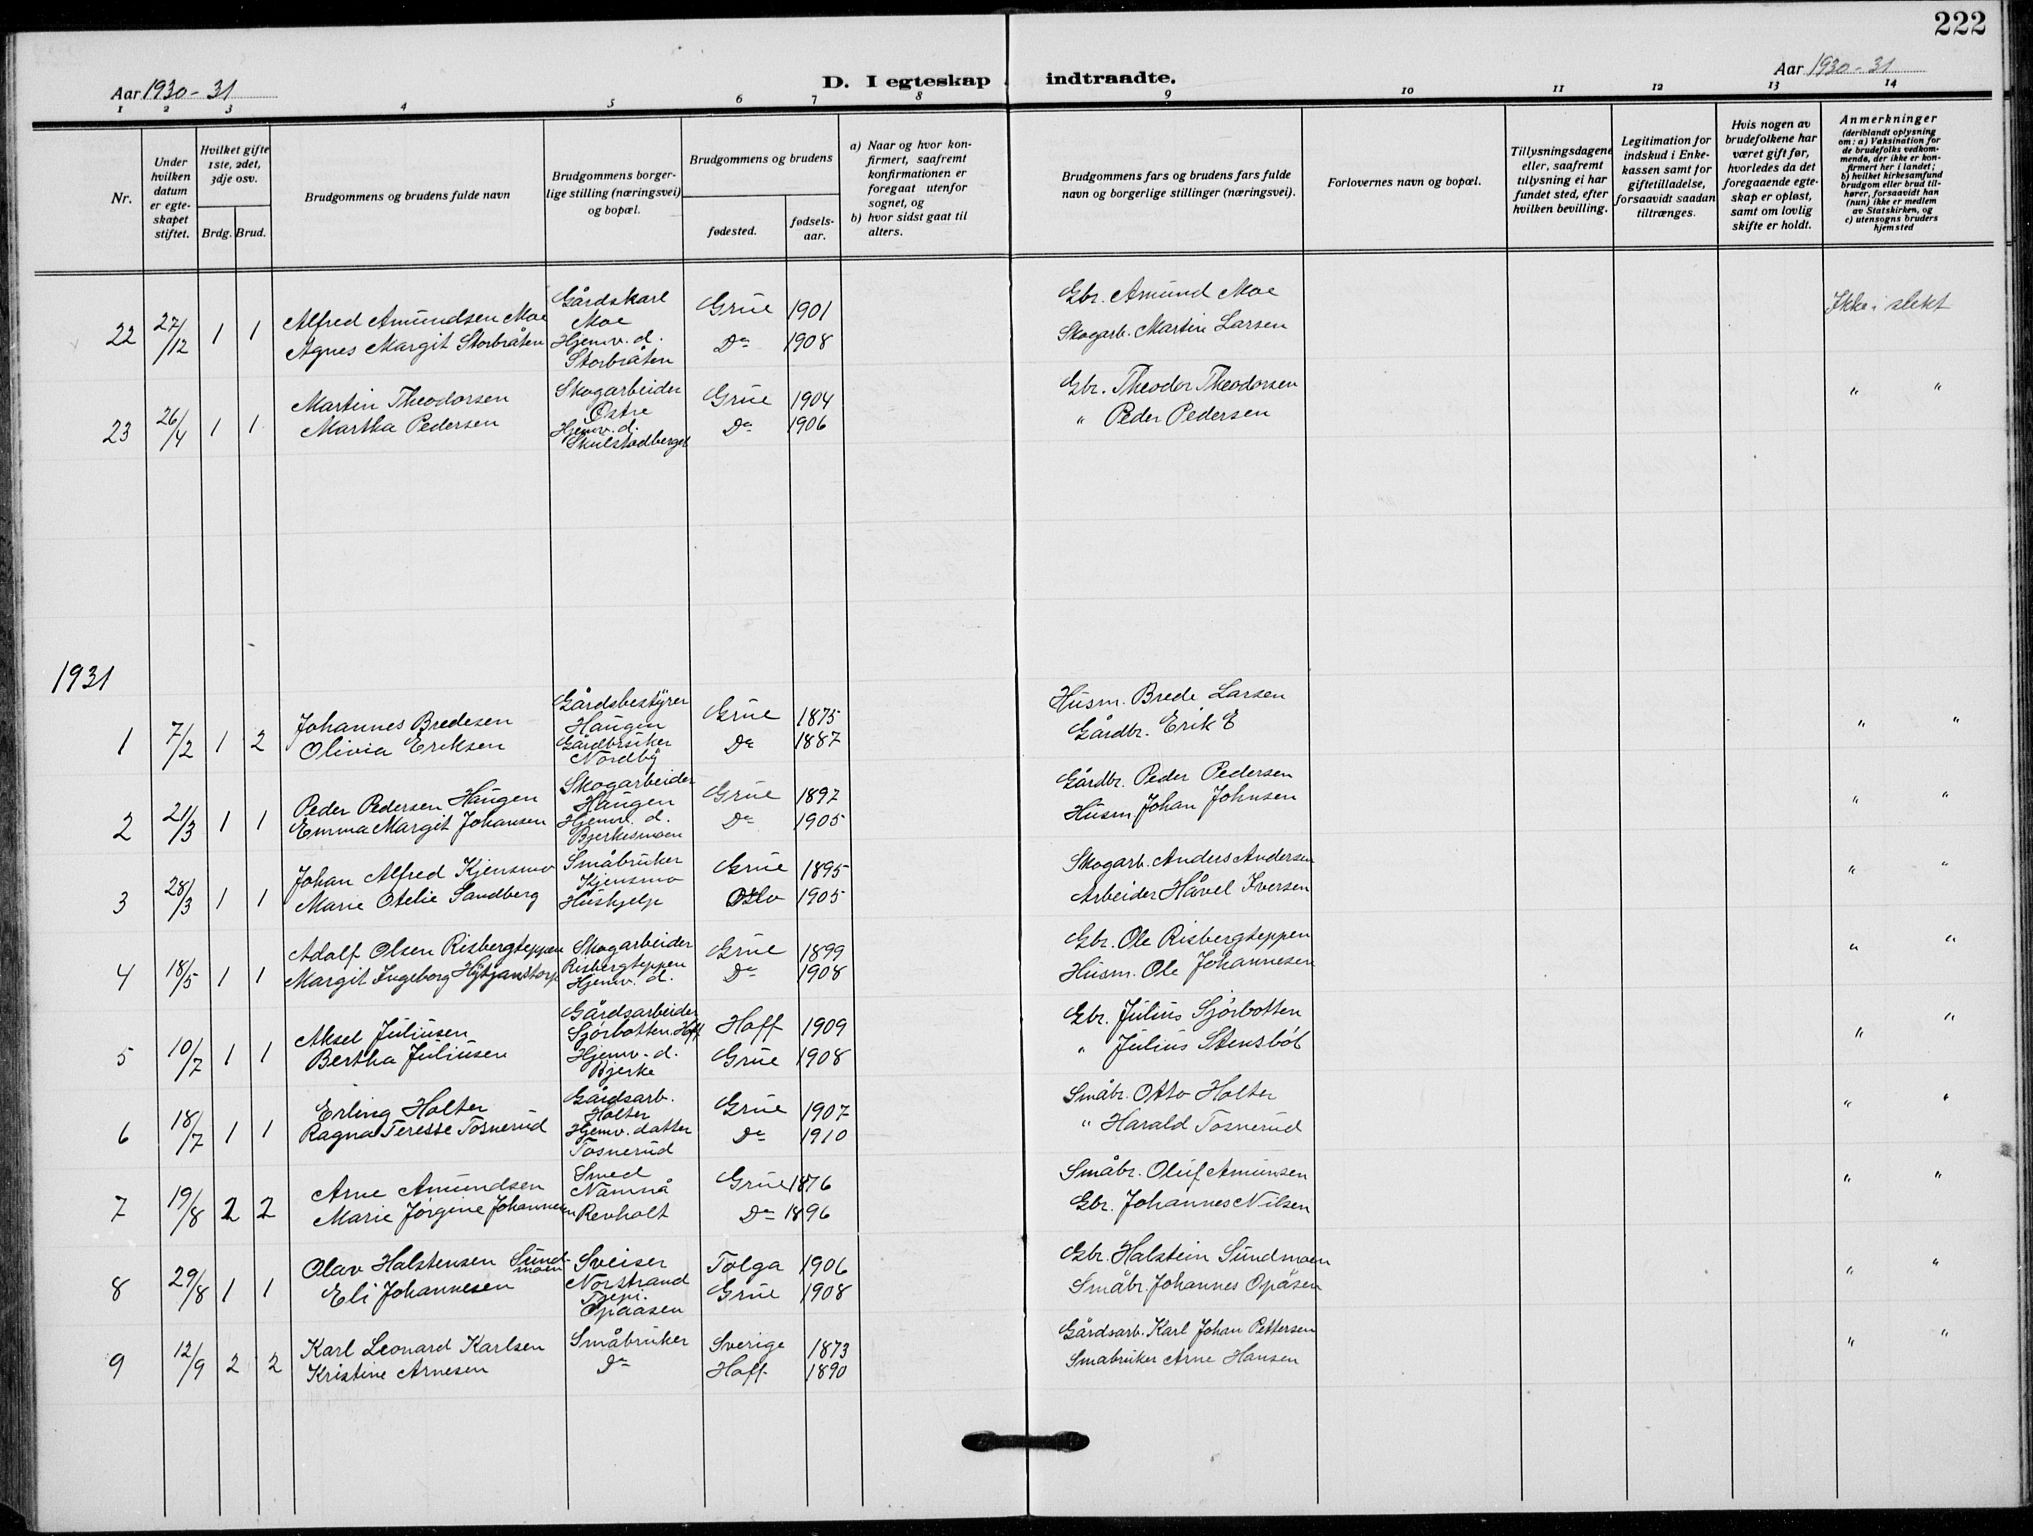 222
Aar 1930-31
D. I egteskap indtraadte.
Aar 1930-31
1 2 3 4 5 6 7 8 9 10 11 12 13 14
Nr.
Under hvilken datum er egteskapet stiftet.
Hvilket gifte 1ste, 2det, 3dje osv.
Brdg. Brud.
Brudgommens og brudens fulde navn
Brudgommens borgerlige stilling (næringsvei) og bopæl.
Brudgommens og brudens
fødested.
fødselsaar.
a) Naar og hvor konfirmert, saafremt konfirmationen er foregaat utenfor sognet, og
b) hvor sidst gaat til alters.
Brudgommens fars og brudens fars fulde navn og borgerlige stillinger (næringsvei).
Forlovernes navn og bopæl.
Tillysningsdagene eller, saafremt tillysning ei har fundet sted, efter hvilken bevilling.
Legitimation for indskud i Enkekassen samt for giftetilladelse, forsaavidt saadan tiltrænges.
Hvis nogen av brudefolkene har været gift før, hvorledes da det foregaaende egteskap er opløst, samt om lovlig skifte er holdt.
Anmerkninger (deriblandt oplysning om: a) Vaksination for de brudefolks vedkommende, der ikke er konfirmert her i landet; b) hvilket kirkesamfund brudgom eller brud tilhører, forsaavidt han (hun) ikke er medlem av Statskirken, og c) utensogns bruders hjemsted
22 27/12 1 1 Alfred Amundsen Moe Gårdskarl Moe Grue 1901 Gbr. Amund Moe Ikke i slekt
Agnes Margit Storbråten Hjemv. d. Storbråten Do 1908 Skogarb. Martin Larsen
23 26/4 1 1 Martin Theodorsen Skogarbeider Østre Grue 1904 Gbr. Theodor Theodorsen " "
Martha Pedersen Hjemv. d. Skulstadberget Do 1906 " Peder Pedersen
1931
1 7/2 1 2 Johannes Bredesen Gårdsbestyrer Haugen Grue 1875 Husm. Brede Larsen " "
Olivia Eriksen Gårdbruker Nordby Do 1887 Gårdbr. Erik E
2 21/3 1 1 Peder Pedersen Haugen Skogarbeider Haugen Grue 1897 Gårdbr. Peder Pedersen " "
Emma Margit Johansen Hjemv. d. Bjerkesmoen Do 1905 Husm Johan Johnsen
3 28/3 1 1 Johan Alfred Kjensmo Småbruker Kjensmo Grue 1895 Skogarb. Anders Andersen " "
Marie Otelie Sandberg Hushjelp Oslo 1905 Arbeider Håvel Iversen
4 18/5 1 1 Adolf Olsen Risbergteppen Skogarbeider Risbergteppen Grue 1899 Gbr. Ole Risbergteppen " "
Margit Ingeborg Hytjanstorp Hjemv. d. Do 1908 Husm. Ole Johannesen
5 10/7 1 1 Aksel Juliusen Gårdsarbeider Sjørbotten Hoff Hoff 1909 Gbr. Julius Sjørbotten " "
Bertha Juliusen Hjemv. d. Bjerke Grue 1908 " Julius Stensbøl
6 18/7 1 1 Erling Holter Gårdsarb. Holter Grue 1907 Småbr. Otto Holter " "
Ragna Teresse Tosnerud Hjemv. datter Tosnerud Do 1910 " Harald Tosnerud
7 19/8 2 2 Arne Amundsen Smed Namnå Grue 1876 Småbr. Oluf Amunsen " "
Marie Jørgine Johannesen Revholt Do 1896 Gbr. Johannes Nilsen
8 29/8 1 1 Olav Halstensen Sundmoen Sveiser Norstrand Tolga 1906 Gbr. Halstein Sundmoen " "
Eli Johannesen Opaasen Grue 1908 Småbr. Johannes Opåsen
9 12/9 2 2 Karl Leonard Karlsen Småbruker Sverige 1873 Gårdsarb. Karl Johan Pettersen " "
Kristine Arnesen Do Hoff 1890 Småbruker Arne Hansen